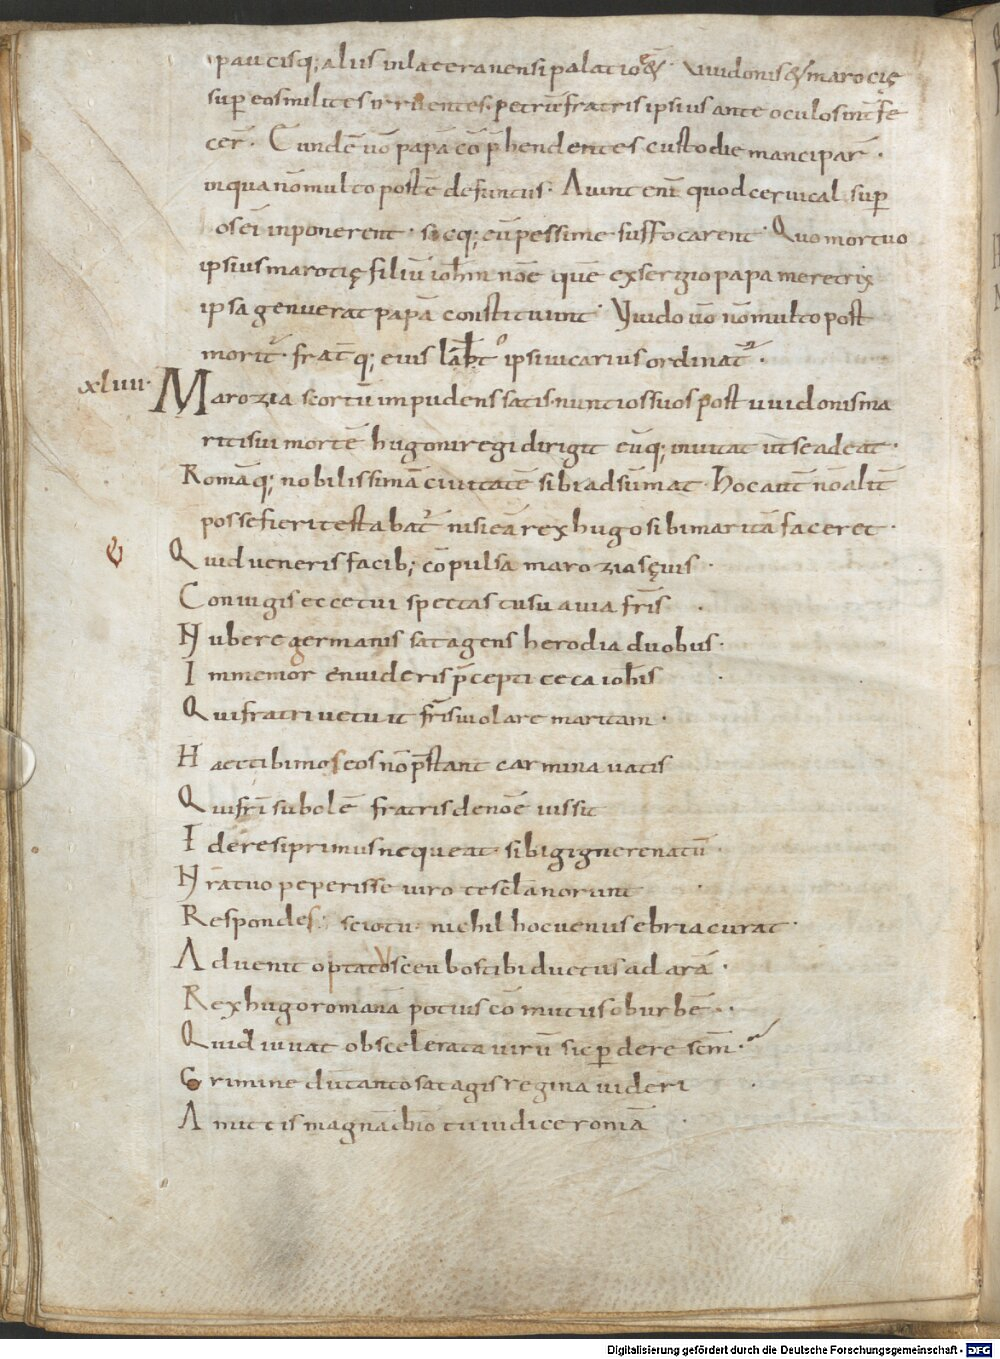 paucisq; aliis in lateranensi palatio eēt. Vuidonis & marocię
sup eos milites irruentes. petrū fratris ipsius ante oculos int̄fe
cer̄. Eundē uō papā cōp̄hendentes custodie mancipar̄.
in qua nōmulto post ē defunctus. Aiunt enī quod ceruical sup
os ei inponerent. sicq; eū pessime suffocarent. Quo mortuo
ipsius marotię filiū ioh̄m nōe quē ex sergio papa meretrix
ipsa genuerat papā constituunt. Vuido uō nōmulto post
morit̄. frat̄q; eius lāb̄tᵒ ipsi uicarius ordinat̄.
xluii. Marozia scortū impudens satis nuntios suos post uuidonis ma
riti sui mortē hugoni regi dirigit eūq; inuitat ut se adeat.
Romāq; nobilissimā ciuitatē sibi adsūmat. Hoc aut̄ nōalit̄
posse fieri testabat̄. nisi eā rex hugo sibi maritā faceret.
Quid ueneris facib; cōpulsa marozia sęuis.
Coniugis ecce tui spectas tu suauia fr̄is.
Nubere germanis satagens herodia duobus.
Immemor en uideris p̄cepti ceca ioh̄is
Qui fratri uetuit fr̄is uiolare maritam.
Haec tibi moseos nōp̄stant carmina uatis
Qui fr̄i subolē fratris de nōe iussit
Idere si primus nequeat sibi gignere natū.
Nr̄a tuo peperisse uiro te sc̄la norunt.
Respondes. scio tu. nichil hoc uenus ebria curat.
Aduenit optatus ceu bos tibi ductus ad arā.
Rex hugo romanā potius cōmutus ob urbē.
Quid iuuat o bscelerata uirū sic p̄dere scm̄.
Crimine dū tanto satagis regina uideri.
Amittis magnā dn̄o tu iudice romā.
Digitalisierung gefördert durch die Deutsche Forschungsgemeinschaft - DFG